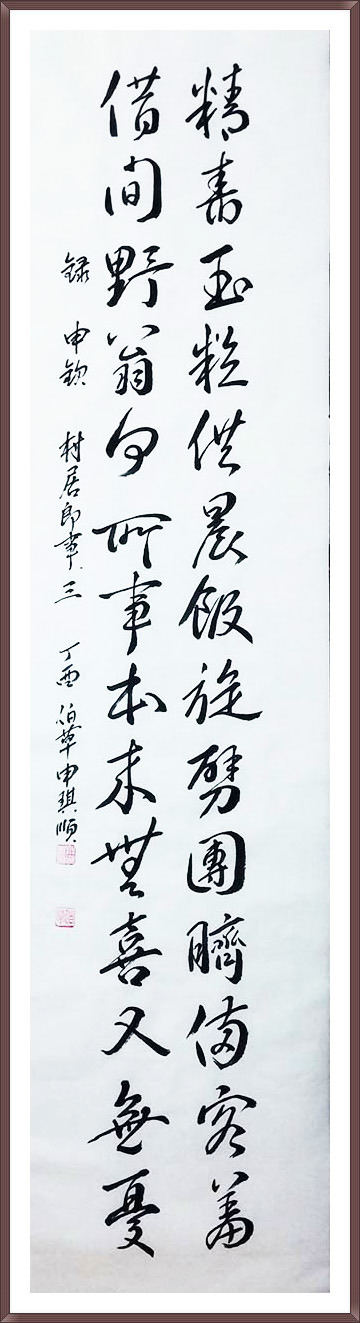 精舂玉粒供晨飯旋劈團臍備客羞
借問野翁何所事本來無喜又無憂
錄 申欽 村居即事 三 丁酉 伯草申琪順